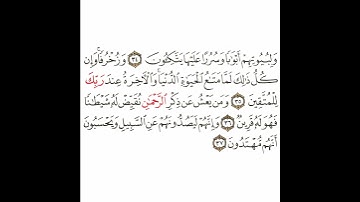 وَلِبُيُوتِهِمْ أَبْوَٰبًا وَسُرُرًا عَلَيْهَا يَتَّكِـُٔونَ ٣٤ وَزُخْرُفًا ۚ وَإِن
كُلُّ ذَٰلِكَ لَمَّا مَتَـٰعُ ٱلْحَيَوٰةِ ٱلدُّنْيَا ۚ وَٱلْـَٔاخِرَةُ عِندَ رَبِّكَ
لِلْمُتَّقِينَ ٣٥ وَمَن يَعْشُ عَن ذِكْرِ ٱلرَّحْمَـٰنِ نُقَيِّضْ لَهُۥ شَيْطَـٰنًا
فَهُوَ لَهُۥ قَرِينٌ ٣٦ وَإِنَّهُمْ لَيَصُدُّونَهُمْ عَنِ ٱلسَّبِيلِ وَيَحْسَبُونَ
أَنَّهُم مُّهْتَدُونَ ٣٧